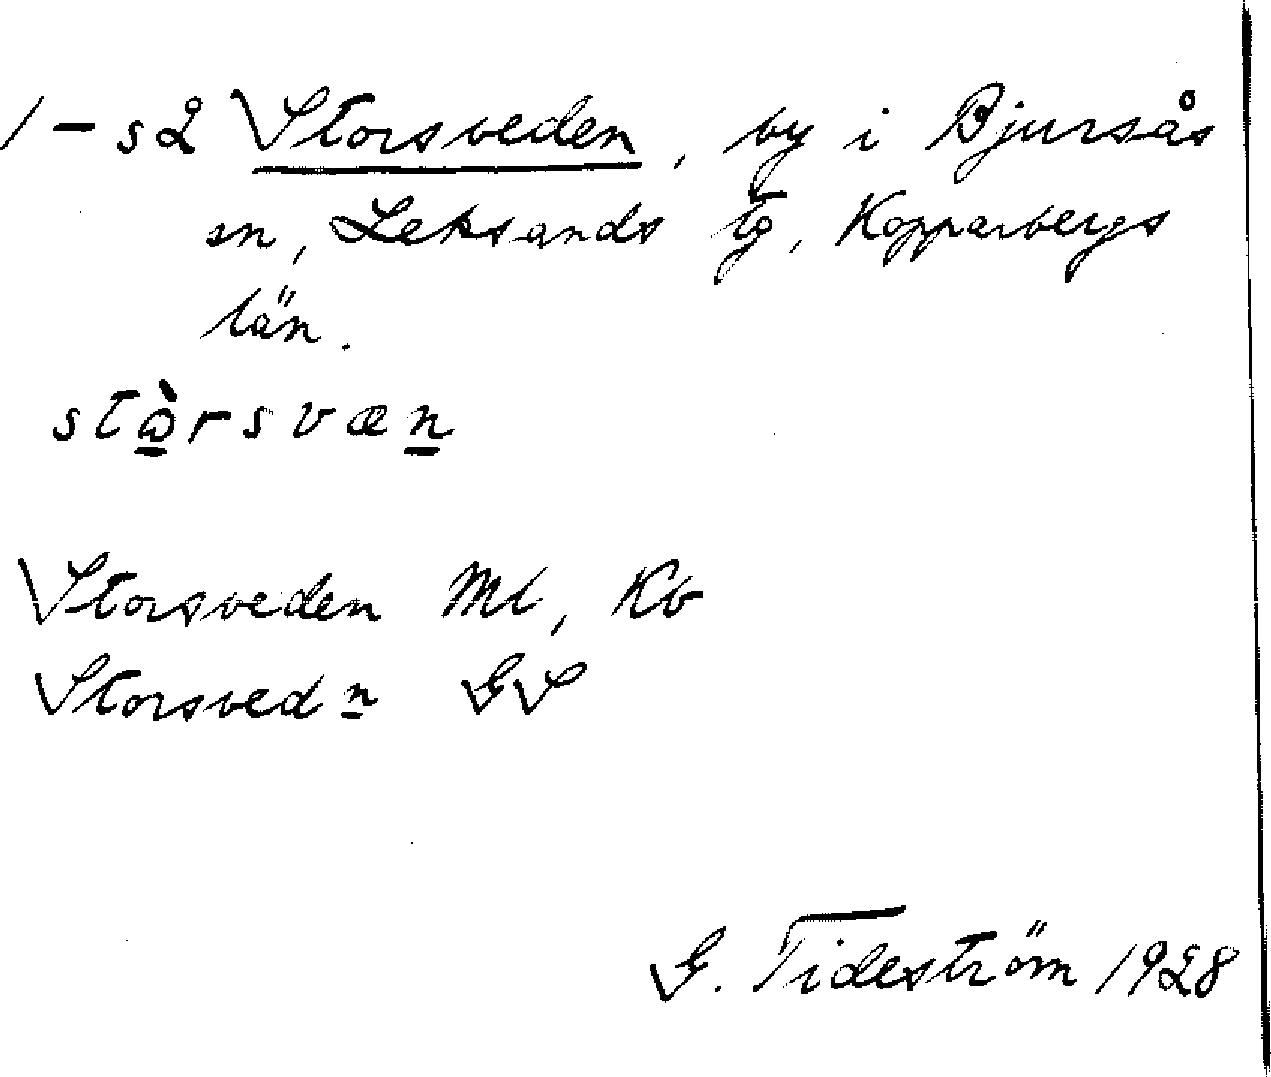 1-s2 Storsveden, by i Bjursås
sn, Leksands tg, Kopparbergs
län.
stὼ̲rsvæn̲
Storsveden Ml, Kb
Storsvedn̲ GS
G. Tideström 1928